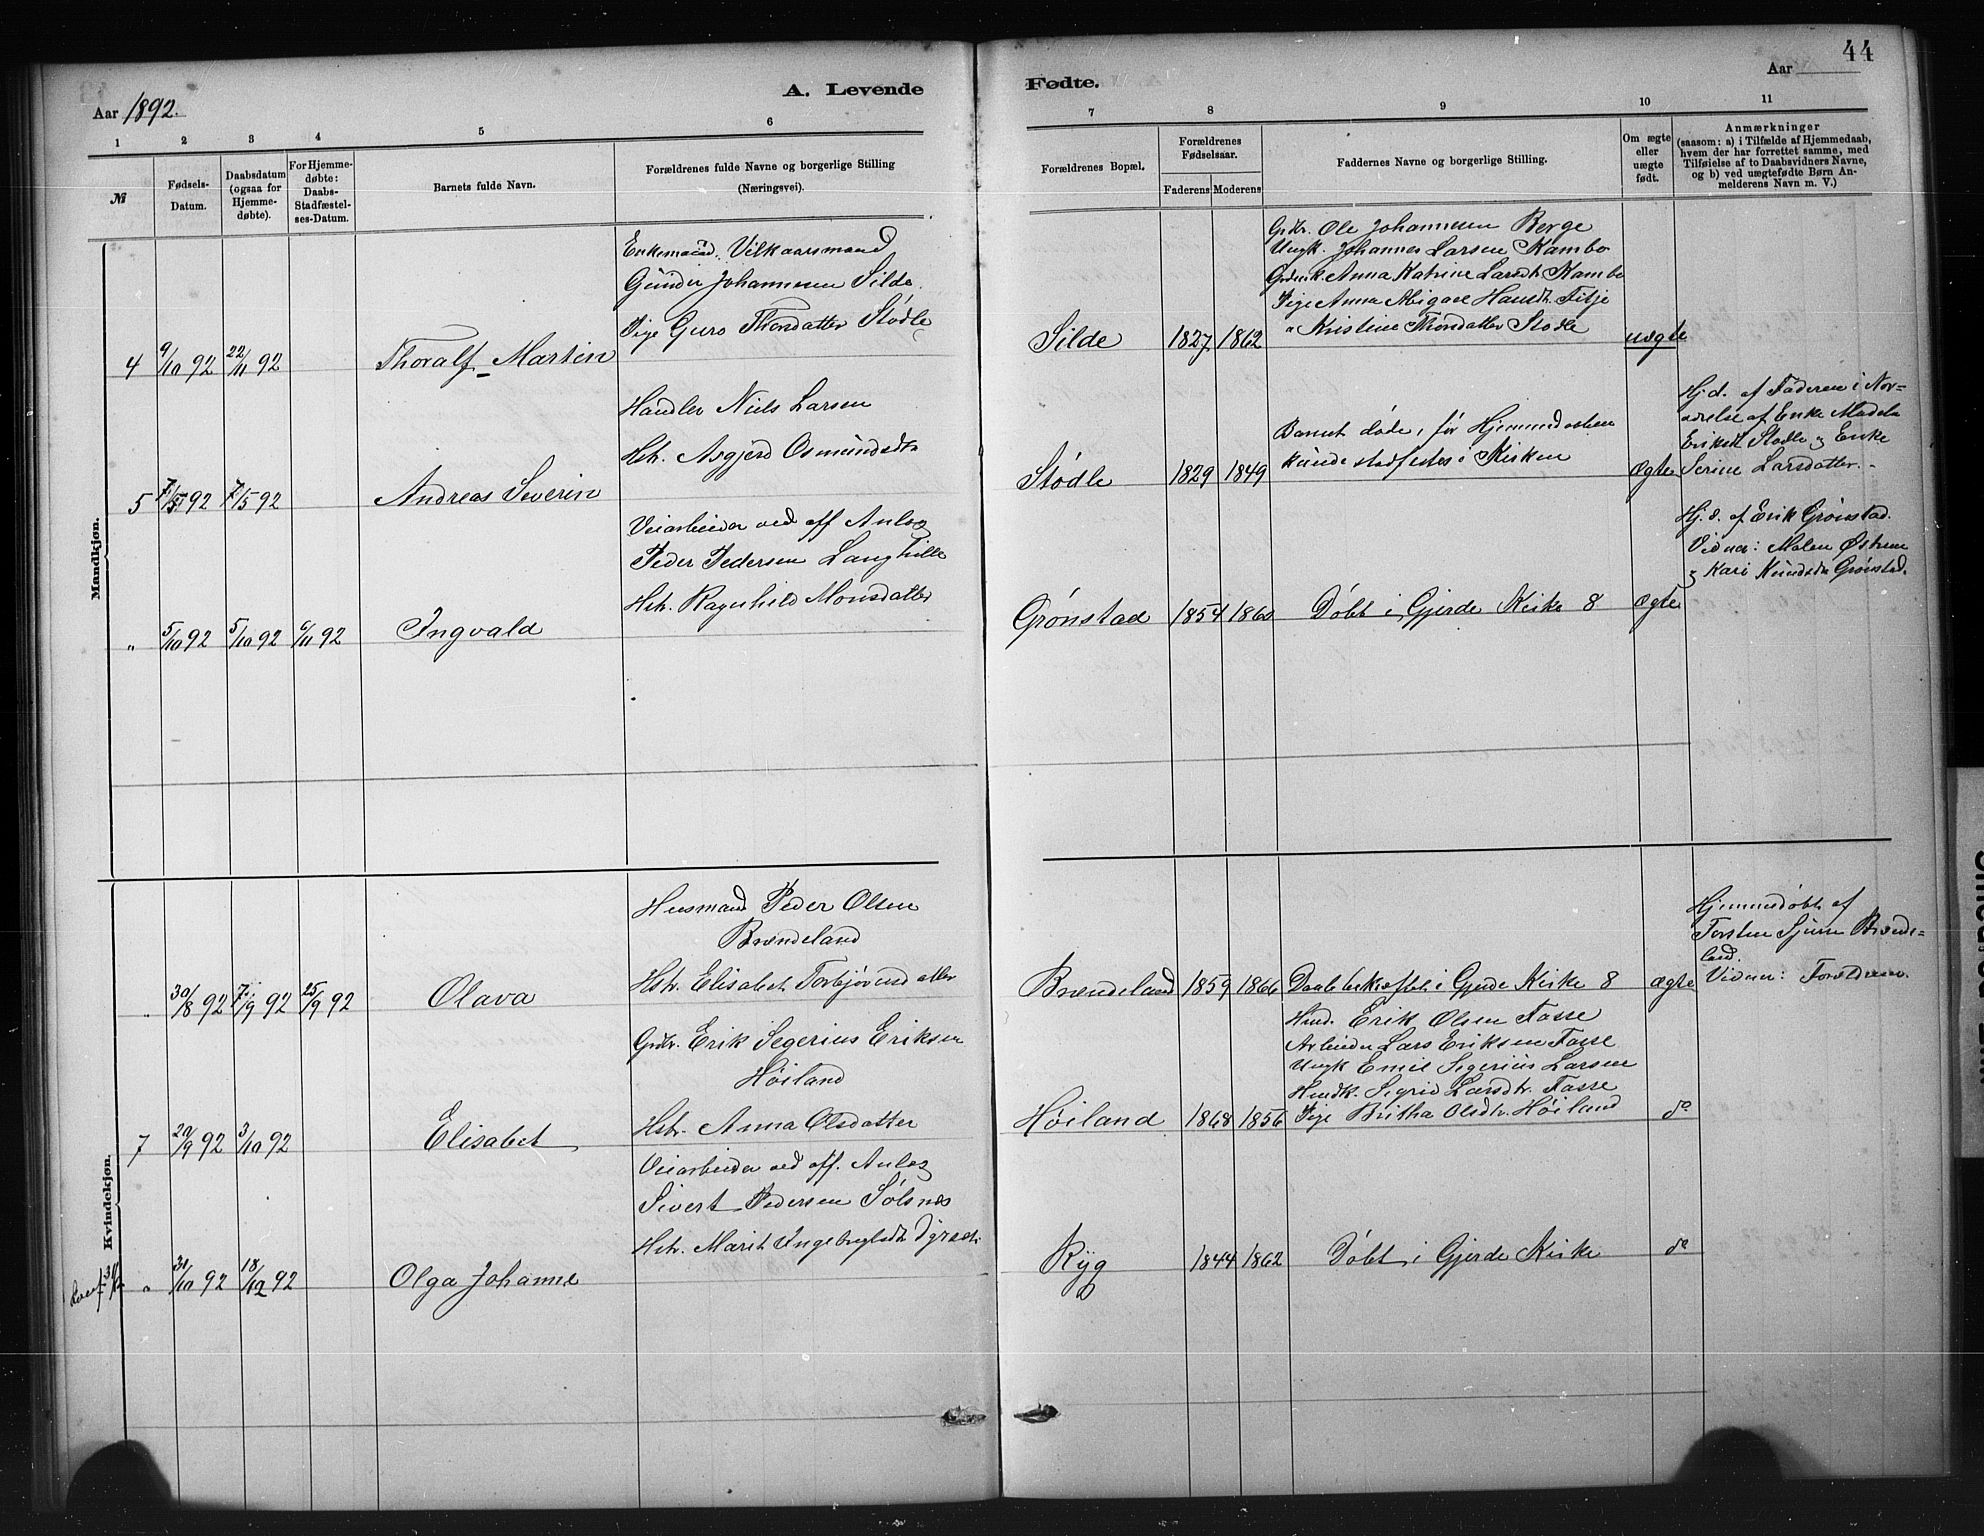 44
A. Levende Fødte.
Aar 1892.
Aar
1 2 3 4 5 6 7 8 9 10 11
№
Fødsels-
Datum.
Daabsdatum
(ogsaa for
Hjemme-
døbte).
For Hjemme-
døbte:
Daabs-
Stadfæstel-
ses-Datum.
Barnets fulde Navn.
Forældrenes fulde Navne og borgerlige Stilling
(Næringsvei).
Forældrenes Bopæl.
Forældrenes
Fødselsaar.
Faderens Moderens
Faddernes Navne og borgerlige Stilling.
Om ægte
eller
uægte
født.
Anmærkninger
(saasom: a) i Tilfælde af Hjemmedaab,
hvem der har forrettet samme, med
Tilføielse af to Daabsvidners Navne,
og b) ved uægtefødte Børn An-
melderens Navn m. V.)
Mandkjøn.
4 9/10 92 22/11 92 Thoralf Martin
Enkemand, Vilkaarsmand
Gunder Johannesen Silde
Pige Guro Thorsdatter Stødle
Silde 1827 1862
Grdr. Ole Johannesen Berge
Ungk. Johannes Larsen Kambo
Anna Katrine Larsdt. Kambo
Pige Anna Abigael Hansdt. Fitje
" Kristine Thorsdatter Stødle
uægte
5 7/5 92 7/5 92 Andreas Severin
Handler Niels Larsen
Hstr. Asgjerd Osmundsdtr
Stødle 1829 1849
Barnet døde, før Hjemmedaaben
kunde stadfestes i Kirken
Ægte
Hj.d. af Faderen i Nær-
værelse af Enke Madela
Eriksdt Stødle og Enke
Serine Larsdatter.
" 5/10 92 5/10 92 6/11 92 Ingvald
Veiarbeider ved off Anlæg
Peder Pedersen Langhille
Hstr. Ragnhild Monsdatter
Grønstad 1854 1860
Døbt i Gjerde Kirke 8
Ægte
Hj.d. af Erik Grønstad.
Vidner: Malen Østrem
og Kari Knudsdtr Grønstad.
Kvindekjøn.
" 30/8 92 7/9 92 25/9 92 Olava
Husmand Peder Olsen
Brændeland
Hstr. Elisabet Torbjørnsdatter
Brændeland 1859 1866
Daab bekræftet i Gjerde Kirke 8
Ægte
Hjemmedøbt af
Torsten Sjurse Brænde-
land.
Vidner: Forældrene.
7 20/9 92 3/10 92 Elisabet
Grdr. Erik Segerius Eriksen
Høiland
Hstr. Anna Olsdatter
Høiland 1868 1856
Erik Olsen Tasse
Arbeider Lars Eriksen Tasse
Ungk Emil Segerius Larsen
Sigrid Larsdtr. Tasse
Pige Britha Olsdtr. Høiland
do
" 31/10 92 18/12 92 Olga Johanne
Veiarbeider ved off. Anlæg
Sivert Pedersen Sølsnes
Hstr. Marit Ingebrigtsdt
Ryg 1844 1862
Døbt i Gjerde Kirke
do